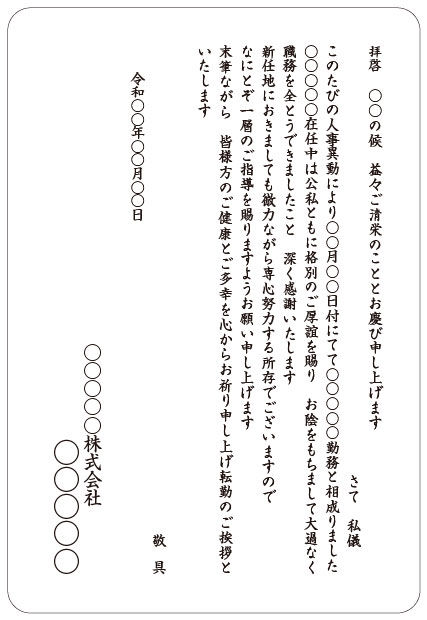 拝啓　〇〇の候　益々ご清栄のこととお慶び申し上げます
さて　私儀
このたびの人事異動により〇〇月〇〇日付にてて〇〇〇〇〇勤務と相成りました
〇〇〇〇〇在任中は公私ともに格別のご厚誼を賜り　お陰をもちまして大過なく
職務を全とうできましたこと　深く感謝いたします
新任地におきましても微力ながら専心努力する所存でございますので
なにとぞ一層のご指導を賜りますようお願い申し上げます
末筆ながら　皆様方のご健康とご多幸を心からお祈り申し上げ転勤のご挨拶と
いたします
敬　具
令和〇〇年〇〇月〇〇日
〇〇〇〇〇株式会社
〇〇〇〇〇